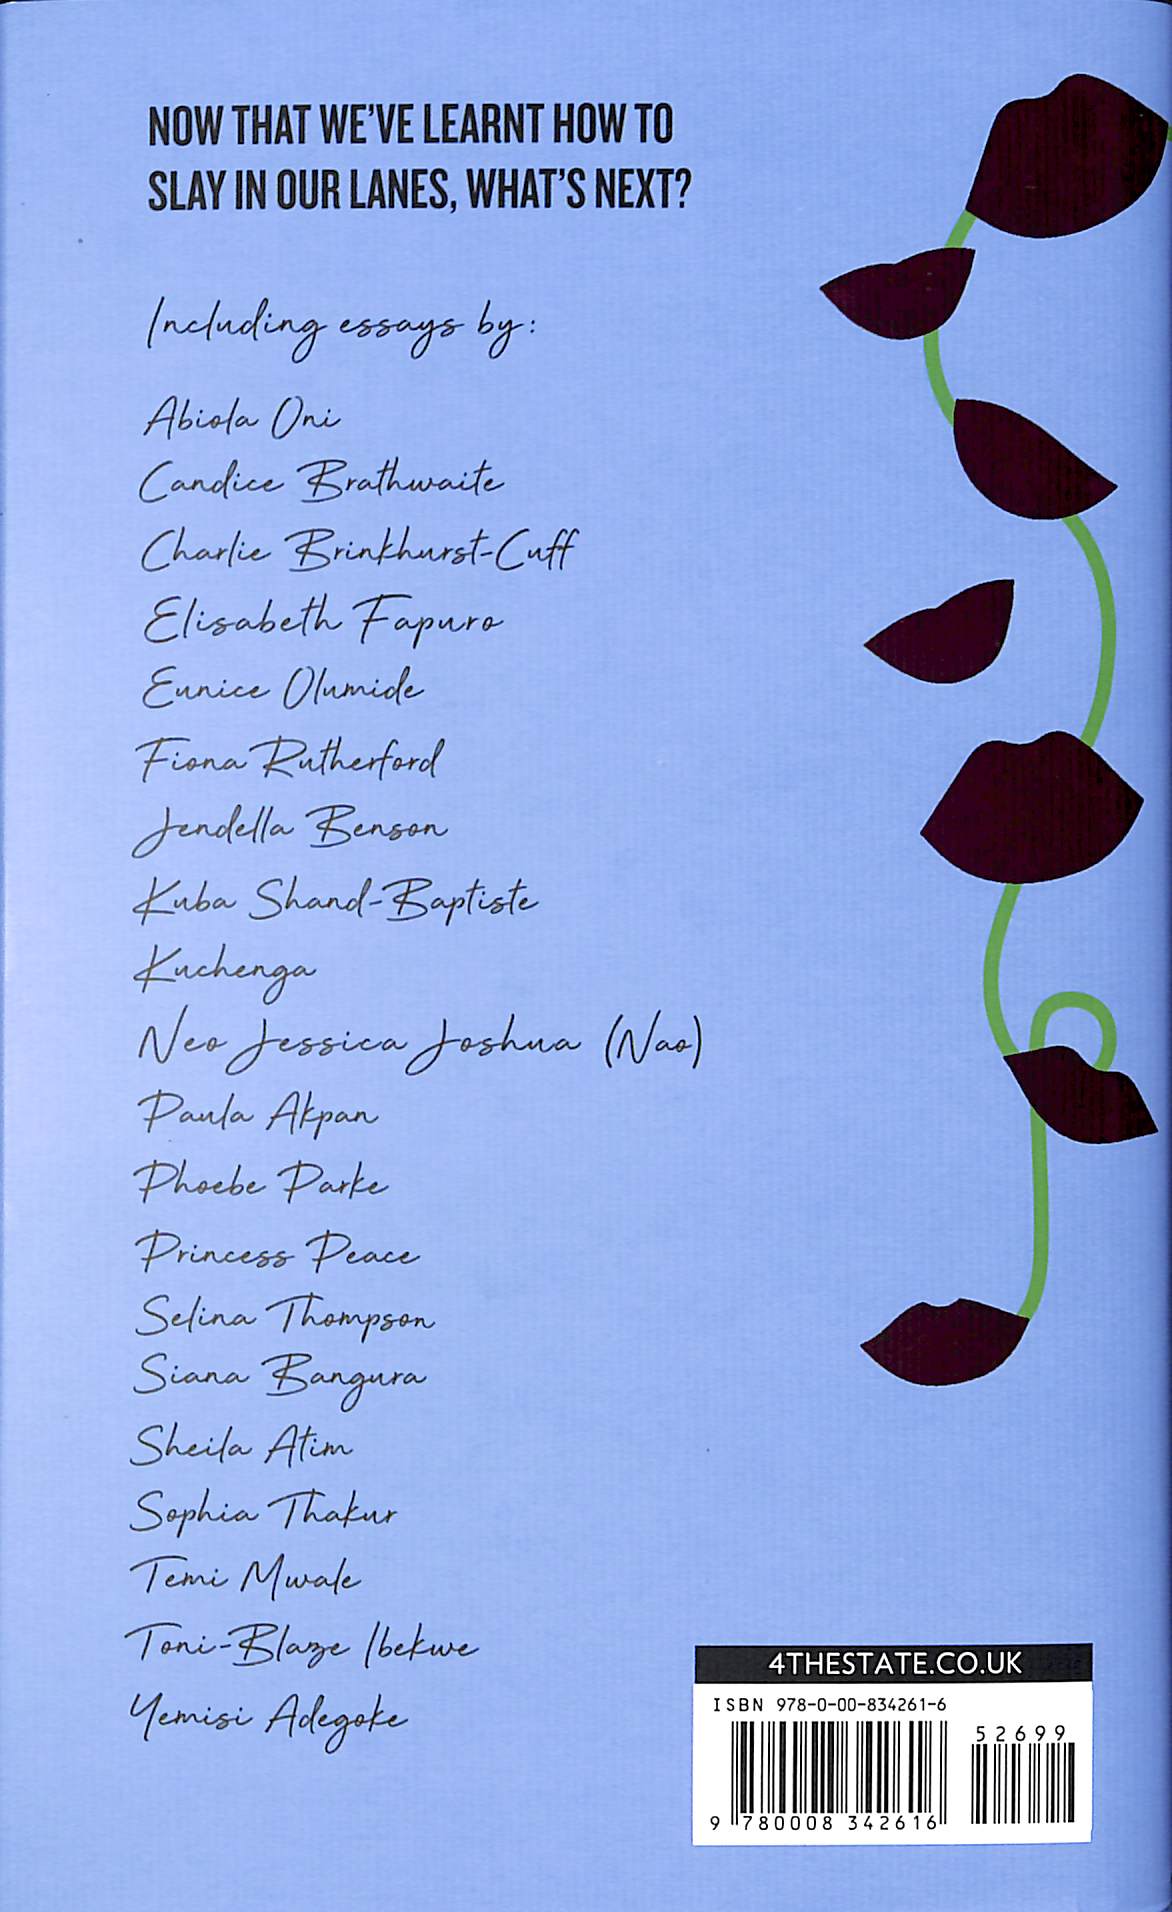 NOW THAT WE'VE LEARNT HOW TO
SLAY IN OUR LANES, WHAT'S NEXT?
Including essays by:
Abiola Oni
Candice Brathwaite
Charlie Brinkhurst-Cuff
Elisabeth Fapuro
Eunice Olumide
Fiona Rutherford
Jendella Benson
Kuba Shand-Baptiste
Kuchenga
Neo Jessica Joshua (Nao)
Paula Akpan
Phoebe Parke
Princess Peace
Selina Thompson
Siana Bangura
Sheila Atim
Sophia Thakur
Temi Mwale
Toni-Blaze Ibekwe
Yemisi Adegoke
4THESTATE.CO.UK
ISBN 978-0-00-834261-6
52699
9 780008 342616